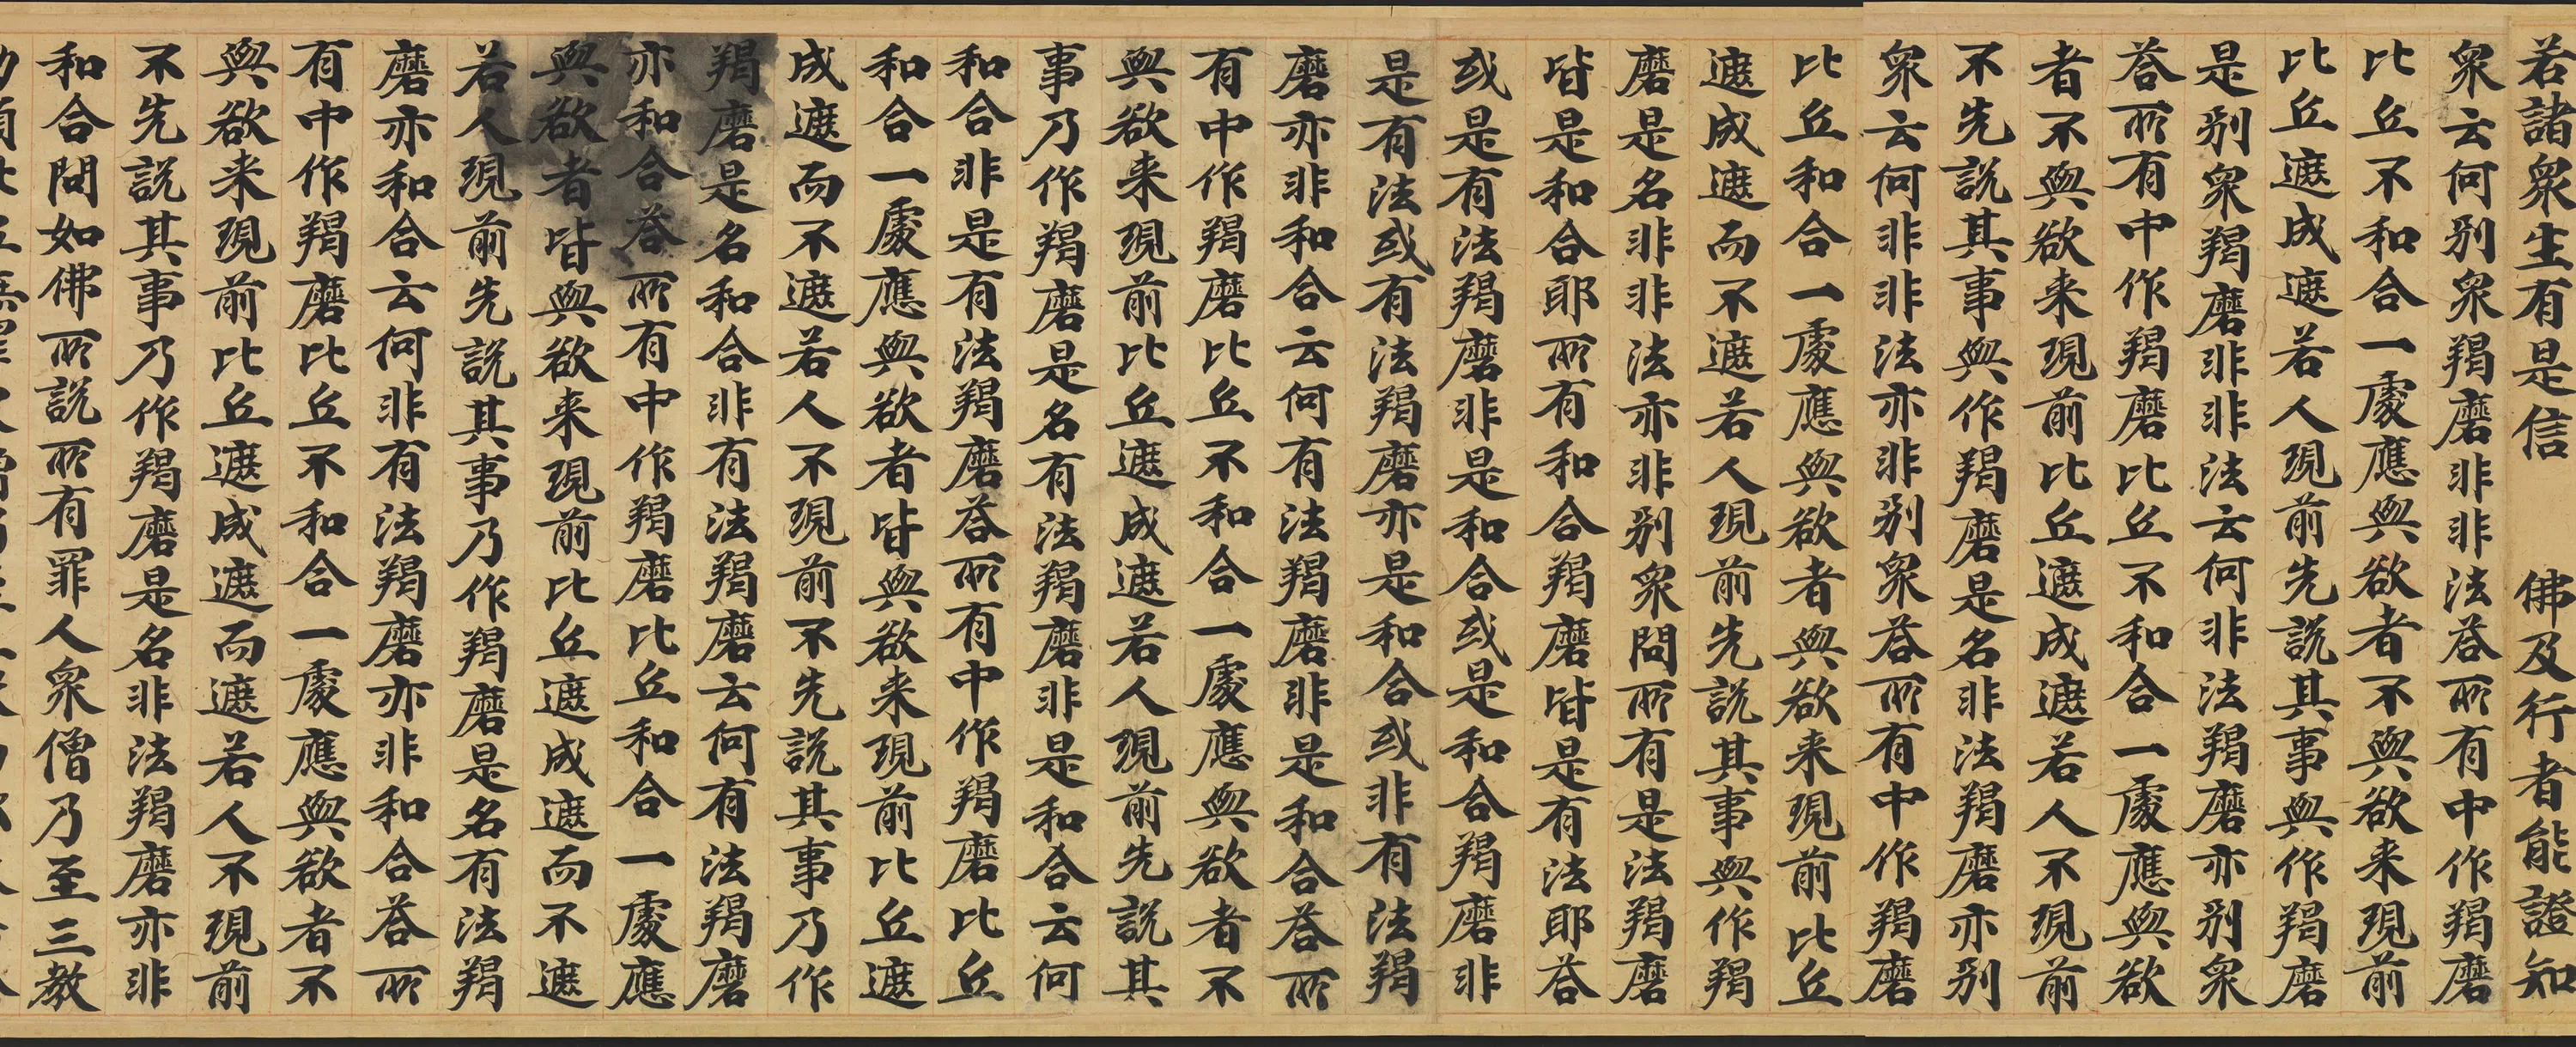 若諸衆生有是信　佛及行者能證知
衆云何别衆羯磨非非法荅所有中作羯磨
比丘不和合一處應與欲者不與欲来現前
比丘遮成遮若人現前先説其事與作羯磨
是别衆羯磨非非法云何非法羯磨亦别衆
荅所有中作羯磨比丘不和合一處應與欲
者不與欲来現前比丘遮成遮若人不現前
不先説其事與作羯磨是名非法羯磨亦别
衆云何非非法亦非别衆荅所有中作羯磨
比丘和合一處應與欲者與欲来現前比丘
遮成遮而不遮若人現前先説其事與作羯
磨是名非非法亦非别衆問所有是法羯磨
皆是和合耶所有和合羯磨皆是有法耶荅
或是有法羯磨非是和合或是和合羯磨非
是有法或有法羯磨亦是和合或非有法羯
磨亦非和合云何有法羯磨非是和合荅所
有中作羯磨比丘不和合一處應與欲者不
與欲来現前比丘遮成遮若人現前先説其
事乃作羯磨是名有法羯磨非是和合云何
和合非是有法羯磨荅所有中作羯磨比丘
和合一處應與欲者皆與欲来現前比丘遮
成遮而不遮若人不現前不先説其事乃作
羯磨是名和合非有法羯磨云何有法羯磨
亦和合荅所有中作羯磨比丘和合一處應
與欲者皆與欲来現前比丘遮成遮而不遮
若人現前先説其事乃作羯磨是名有法羯
磨亦和合云何非有法羯磨亦非和合荅所
有中作羯磨比丘不和合一處應與欲者不
與欲来現前比丘遮成遮而遮若人不現前
不先説其事乃作羯磨是名非法羯磨亦非
和合問如佛所説所有罪人衆僧乃至三教